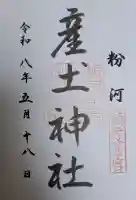 粉河
産土神社
令和八年五月十八日